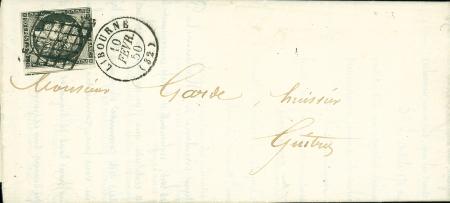 LIBOURNE
10
FEVR.
50
(32)
Monsieur Garde, huissier
Guîtres